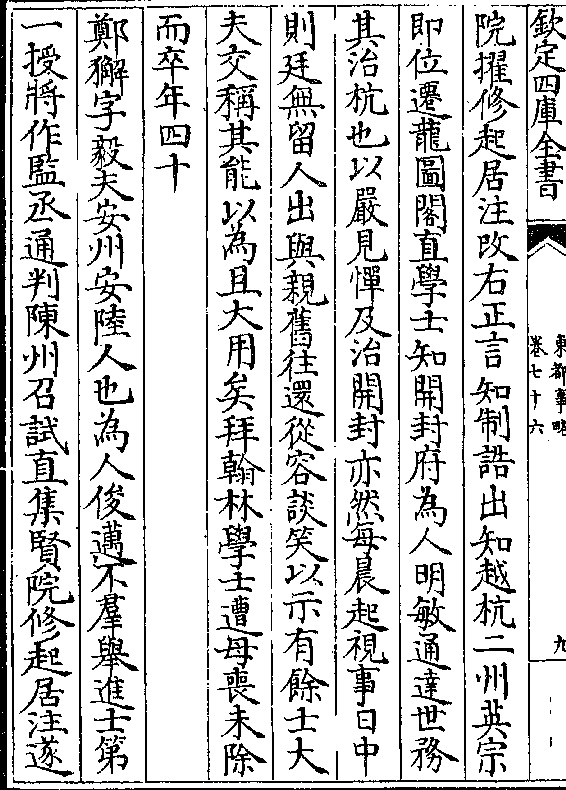 欽定四庫全書
東都事略
卷七十六
九
院擢修起居注改右正言知制誥出知越杭二州英宗
即位遷龍圖閣直學士知開封府為人明敏通達世務
其治杭也以嚴見憚及治開封亦然每晨起視事日中
則廷無留人出與親舊往還從容談笑以示有餘士大
夫交稱其能以為且大用矣拜翰林學士遭母喪未除
而卒年四十
鄭獬字毅夫安州安陸人也為人俊邁不羣舉進士第
一授將作監丞通判陳州召試直集賢院修起居注遂